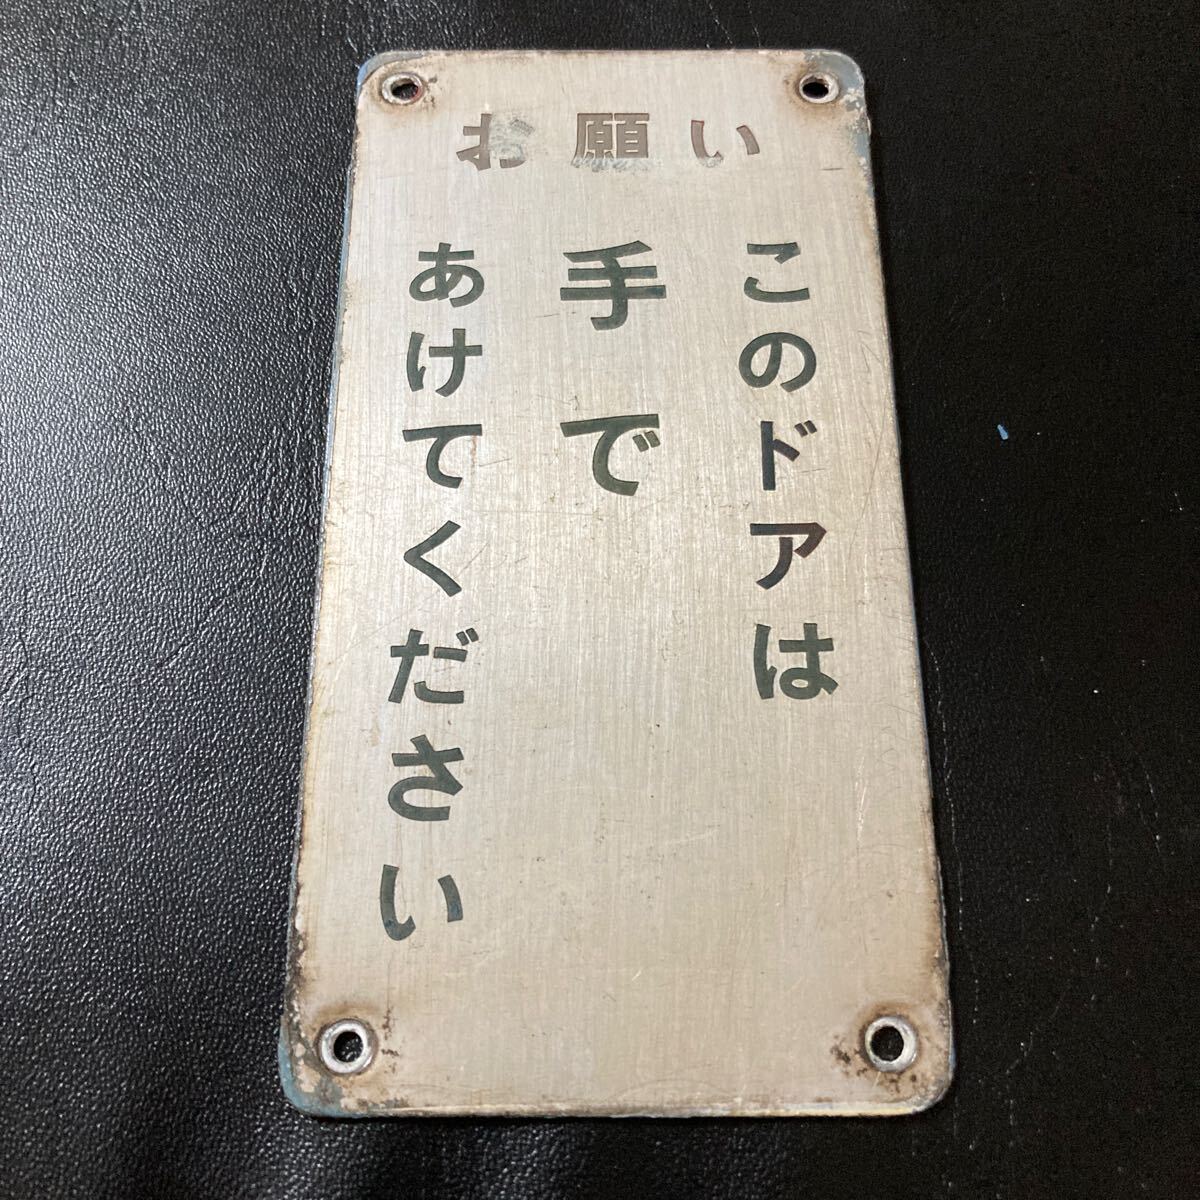 お願い
このドアは
手で
あけてください